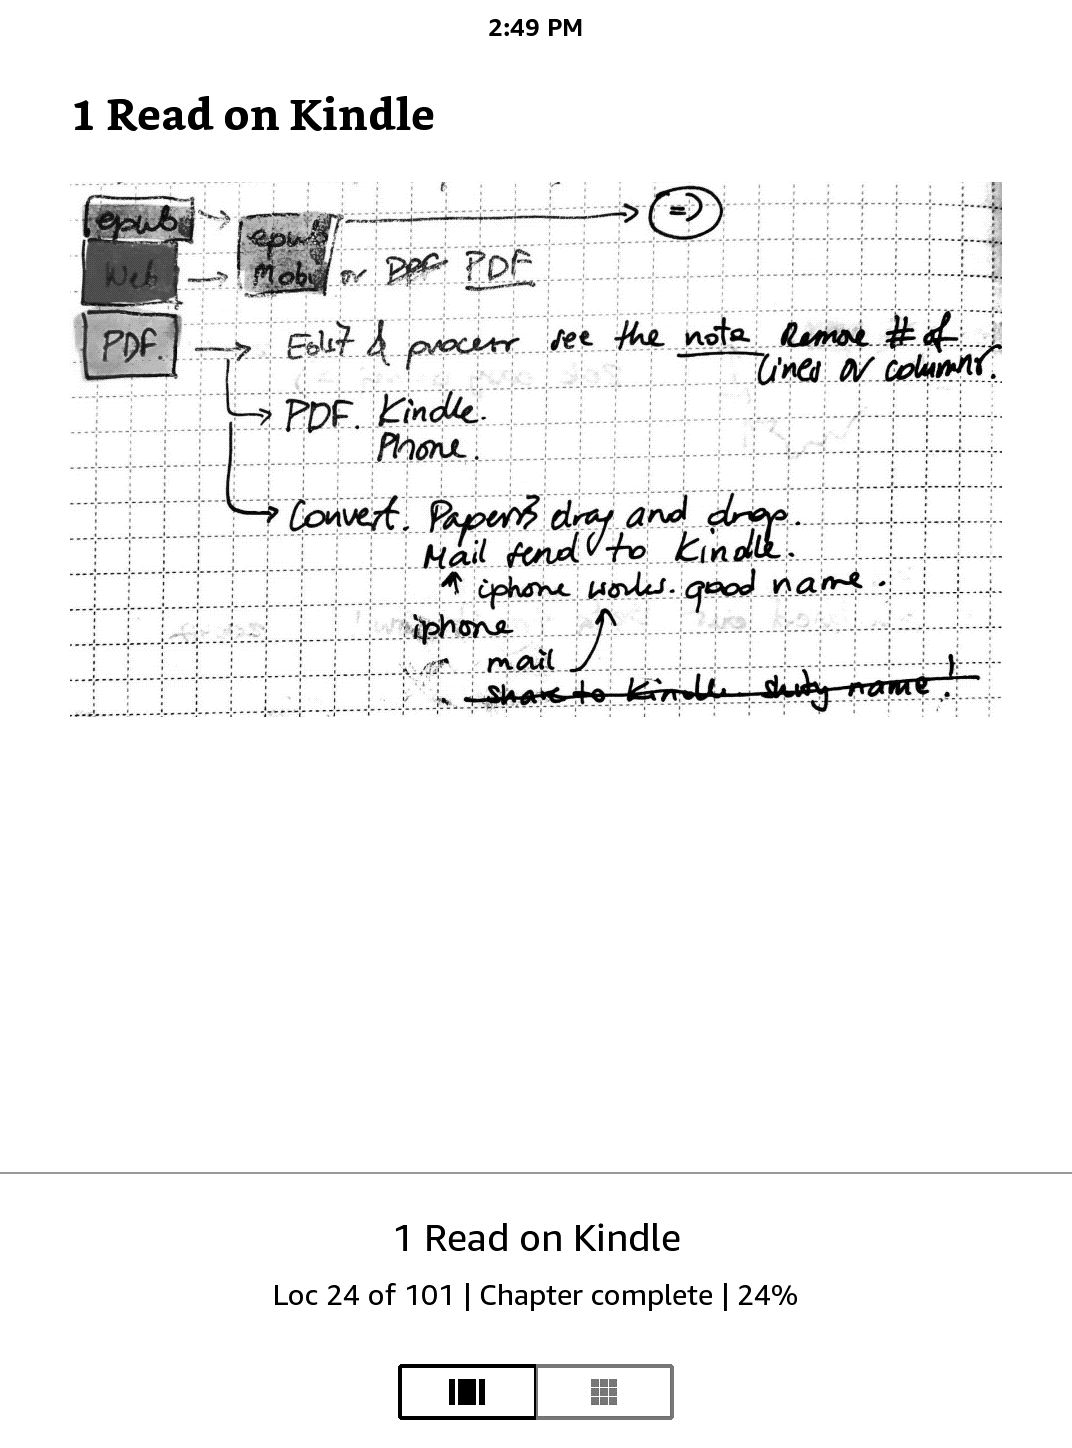 2:49 PM
1 Read on Kindle
epub
Web
epub
Mobi or PDF
PDF.
Edit & process see the note Remove # of
lines or columns.
PDF. Kindle.
Phone.
Convert. Papers3 drag and drop.
Mail send to Kindle.
iphone works. good name.
iphone
mail
share to Kindle name!
1 Read on Kindle
Loc 24 of 101 | Chapter complete | 24%